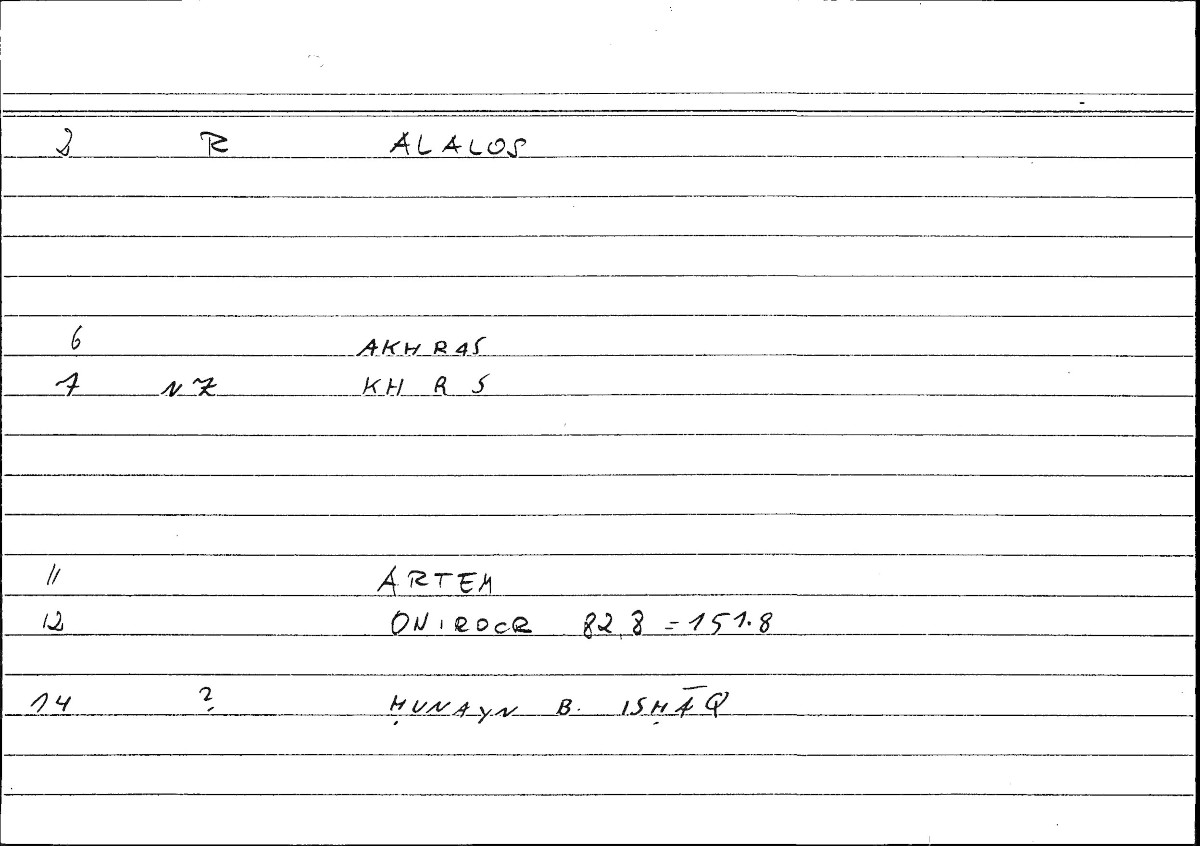 2 R ALALOS
6 AKHRAS
7 NZ KH R S
11 ARTEM
12 ONIROCR 82,8 = 151.8
14 ? ḤUNAYN B. ISḤĀQ